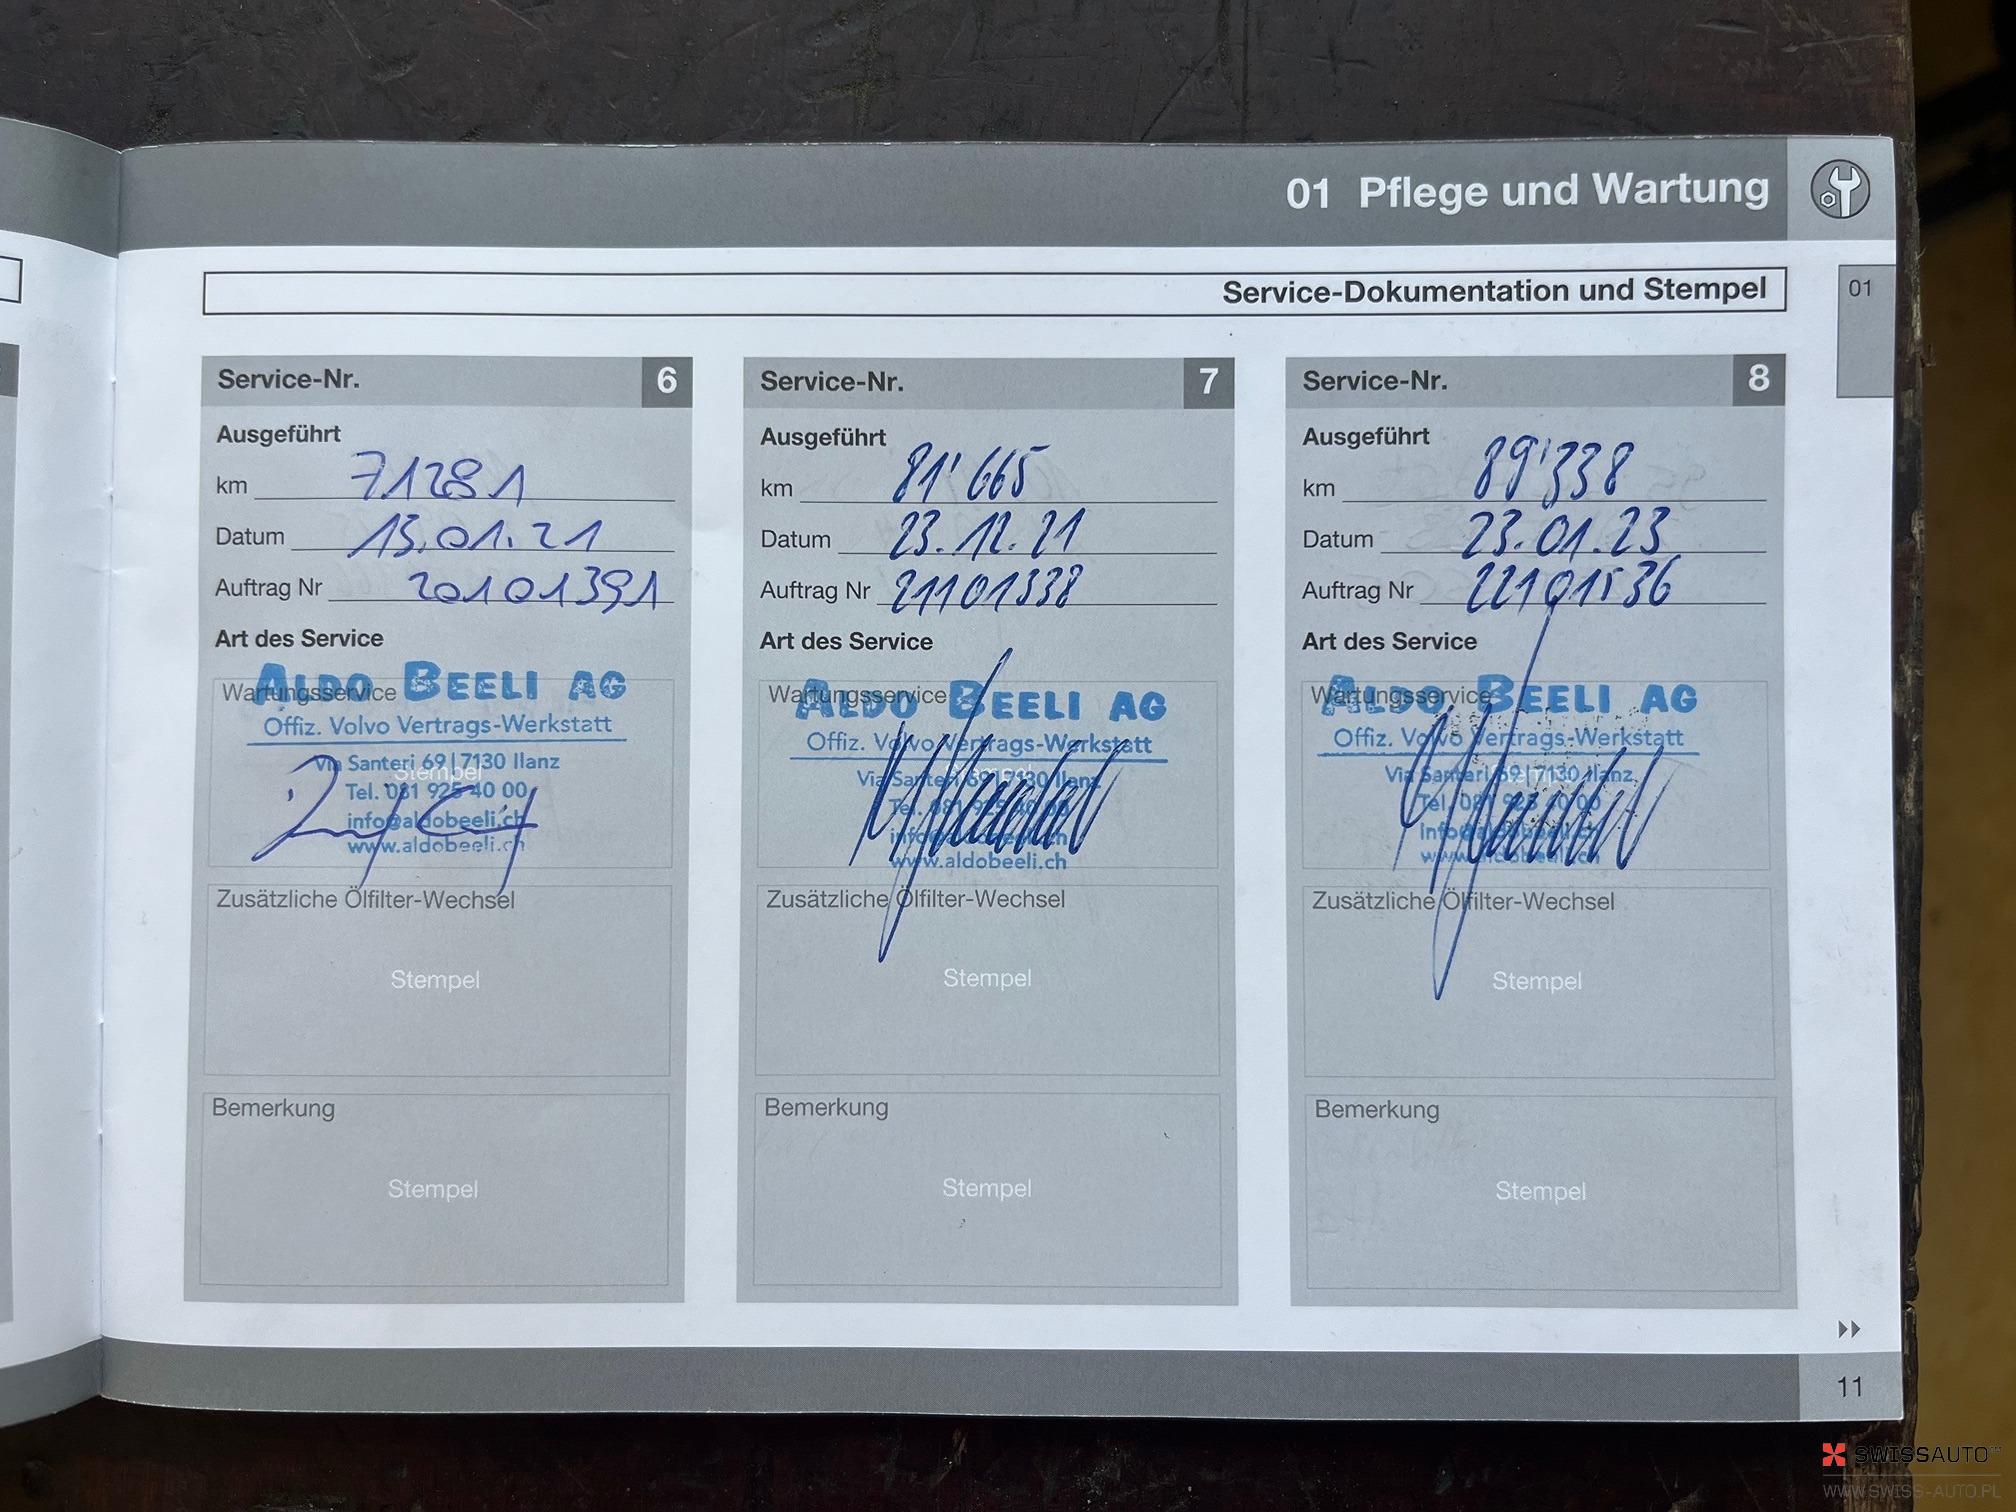 01 Pflege und Wartung
Service-Dokumentation und Stempel
01
Service-Nr. 6
Ausgeführt
km 71281
Datum 13.01.21
Auftrag Nr 20101391
Art des Service
Wartungsservice
ALDO BEELI AG
Offiz. Volvo Vertrags-Werkstatt
Via Santeri 69 | 7130 Ilanz
Stempel
Tel. 081 925 40 00
info@aldobeeli.ch
www.aldobeeli.ch
Zusätzliche Ölfilter-Wechsel
Stempel
Bemerkung
Stempel
Service-Nr. 7
Ausgeführt
km 81'665
Datum 23.12.21
Auftrag Nr 21101338
Art des Service
Wartungsservice
ALDO BEELI AG
Offiz. Volvo Vertrags-Werkstatt
Via Santeri 69 | 7130 Ilanz
Tel. 081 925 40 00
info@aldobeeli.ch
www.aldobeeli.ch
Zusätzliche Ölfilter-Wechsel
Stempel
Bemerkung
Stempel
Service-Nr. 8
Ausgeführt
km 89'338
Datum 23.01.23
Auftrag Nr 22101536
Art des Service
Wartungsservice
ALDO BEELI AG
Offiz. Volvo Vertrags-Werkstatt
Via Santeri 69 | 7130 Ilanz
Tel. 081 925 40 00
info@aldobeeli.ch
www.aldobeeli.ch
Zusätzliche Ölfilter-Wechsel
Stempel
Bemerkung
Stempel
11
SWISSAUTO
WWW.SWISS-AUTO.PL